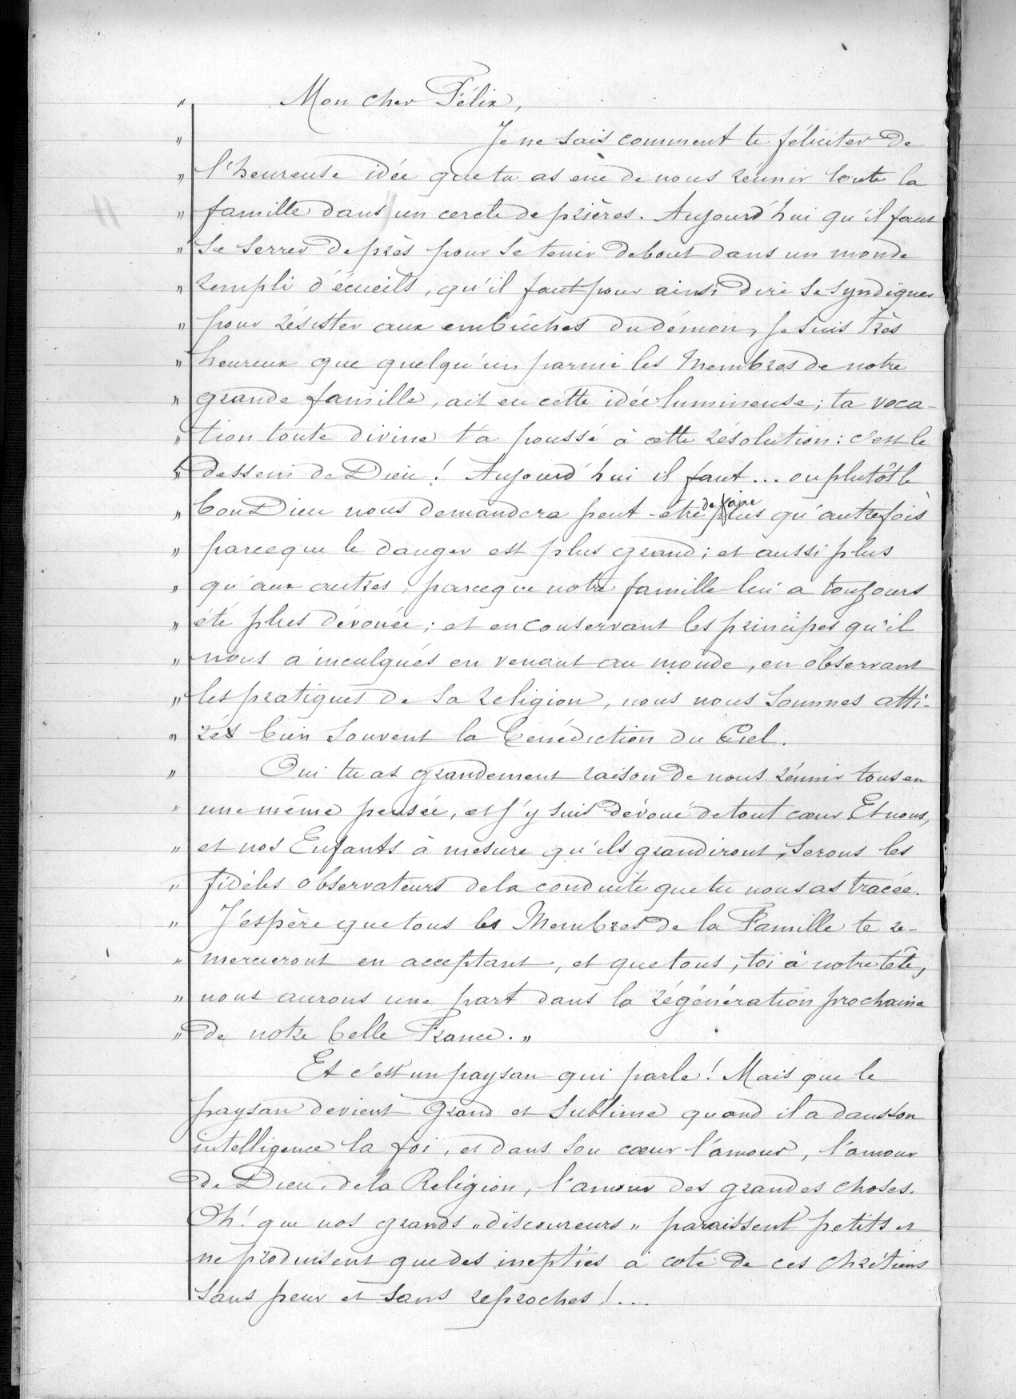 " Mon cher Félix,
" Je ne sais comment te féliciter de
" l'heureuse idée que tu as eue de nous réunir toute la
" famille dans un cercle de prières. Aujourd'hui qu'il faut
" se serrer de près pour se tenir debout dans un monde
" rempli d'écueils, qu'il faut pour ainsi dire se syndiquer
" pour résister aux embûches du démon, je suis très
" heureux que quelqu'un parmi les Membres de notre
" grande famille, ait eu cette idée lumineuse; ta voca-
" tion toute divine t'a poussé à cette résolution: c'est le
" dessein de Dieu! Aujourd'hui il faut... ou plutôt le
" bon Dieu nous demandera peut-être de faire plus qu'autrefois
" parceque le danger est plus grand; et aussi plus
" qu'aux autres, parceque notre famille lui a toujours
" été plus dévouée; et en conservant les principes qu'il
" nous a inculqués en venant au monde, en observant
" les pratiques de sa religion, nous nous sommes atti-
" rés bien souvent la bénédiction du Ciel.
" Oui tu as grandement raison de nous réunir tous en
" une même pensée, et j'y suis dévoué de tout cœur Et nous,
" et nos Enfants à mesure qu'ils grandiront, serons les
" fidèles observateurs de la conduite que tu nous as tracée.
" J'espère que tous les Membres de la Famille te re-
" mercieront en acceptant, et que tous, toi à notre tête,
" nous aurons une part dans la régénération prochaine
" de notre belle France. "
Et c'est un paysan qui parle! Mais que le
paysan devient Grand et Sublime quand il a dans son
intelligence la foi, et dans son cœur l'amour, l'amour
de Dieu, de la Religion, l'amour des grandes choses.
Oh! que nos grands "discoureurs" paraissent petits et
ne produisent que des inepties à coté de ces chrétiens
sans peur et sans reproches!...